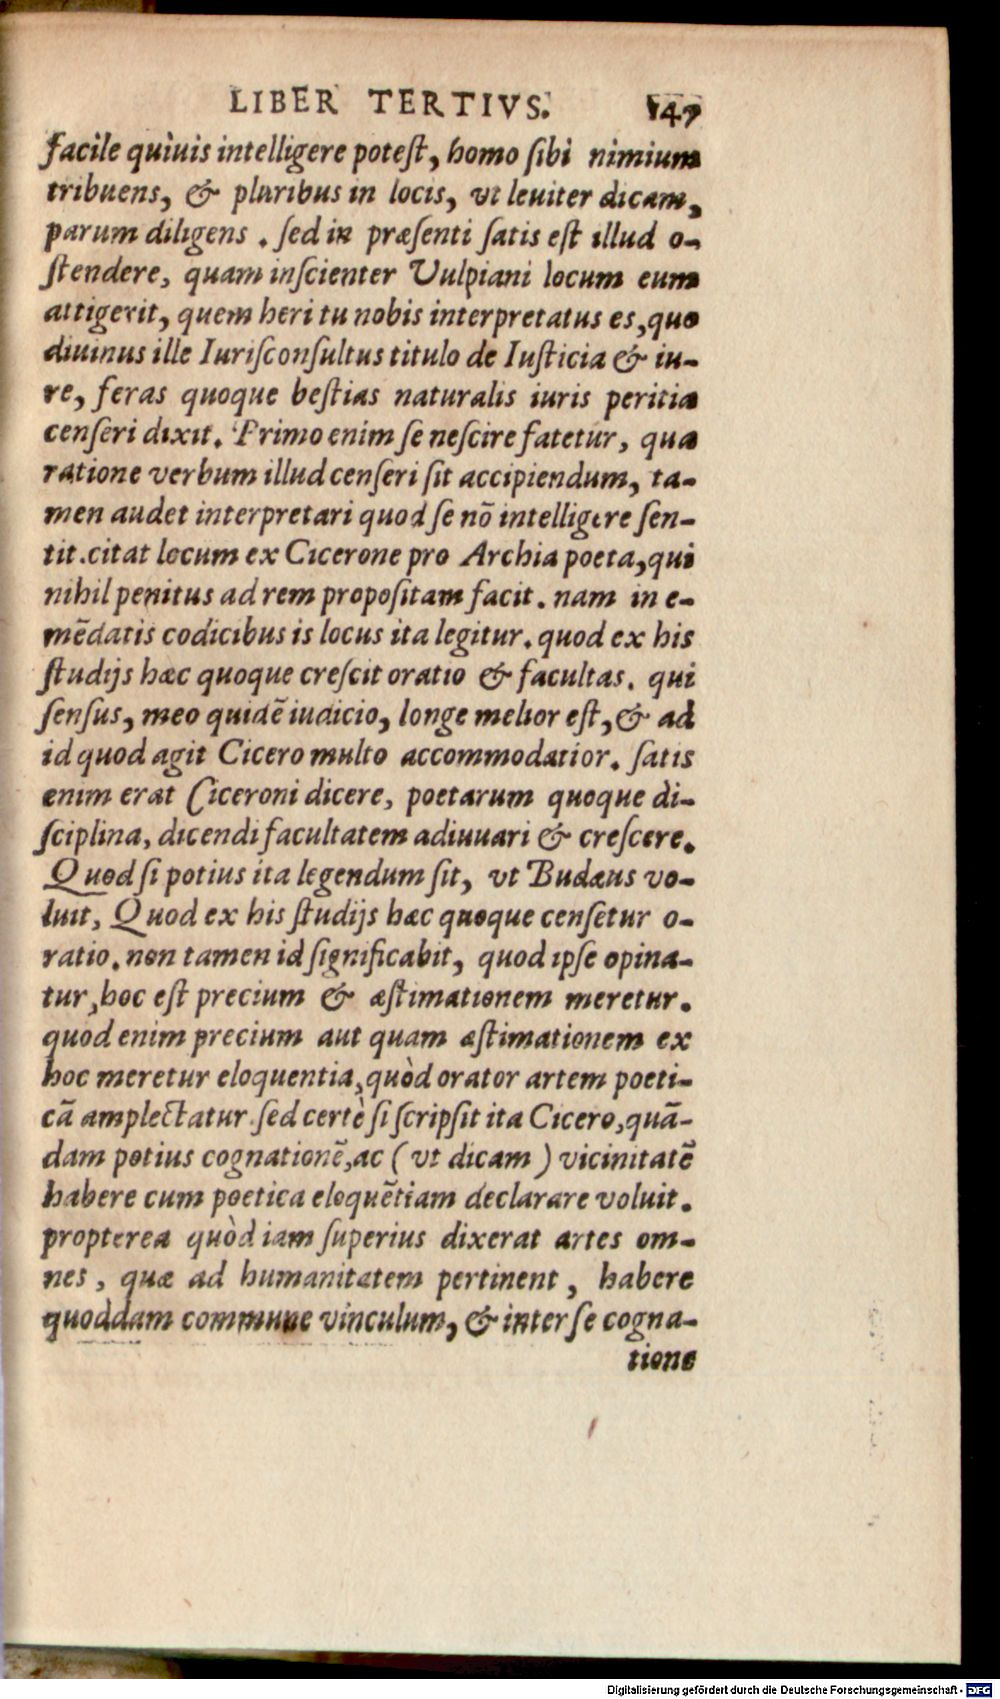 LIBER TERTIVS. 147
facile quiuis intelligere potest, homo sibi nimium
tribuens, & pluribus in locis, vt leuiter dicam,
parum diligens . sed in præsenti satis est illud o-
stendere, quam inscienter Vulpiani locum eum
attigerit, quem heri tu nobis interpretatus es, quo
diuinus ille Iurisconsultus titulo de Iusticia & iu-
re, feras quoque bestias naturalis iuris peritia
censeri dixit. Primo enim se nescire fatetur, qua
ratione verbum illud censeri sit accipiendum, ta-
men audet interpretari quod se nō intelligere sen-
tit. citat locum ex Cicerone pro Archia poeta, qui
nihil penitus ad rem propositam facit. nam in e-
mēdatis codicibus is locus ita legitur. quod ex his
studijs hæc quoque crescit oratio & facultas. qui
sensus, meo quidē iudicio, longe melior est, & ad
id quod agit Cicero multo accommodatior. satis
enim erat Ciceroni dicere, poetarum quoque di-
sciplina, dicendi facultatem adiuuari & crescere.
Quod si potius ita legendum sit, vt Budæus vo-
luit, Quod ex his studijs hæc quoque censetur o-
ratio. non tamen id significabit, quod ipse opina-
tur, hoc est precium & æstimationem meretur.
quod enim precium aut quam æstimationem ex
hoc meretur eloquentia, quòd orator artem poeti-
cā amplectatur. sed certè si scripsit ita Cicero, quā-
dam potius cognationē, ac ( vt dicam ) vicinitatē
habere cum poetica eloquētiam declarare voluit.
propterea quòd iam superius dixerat artes om-
nes, quæ ad humanitatem pertinent, habere
quoddam commune vinculum, & inter se cogna-
tione
Digitalisierung gefördert durch die Deutsche Forschungsgemeinschaft - DFG